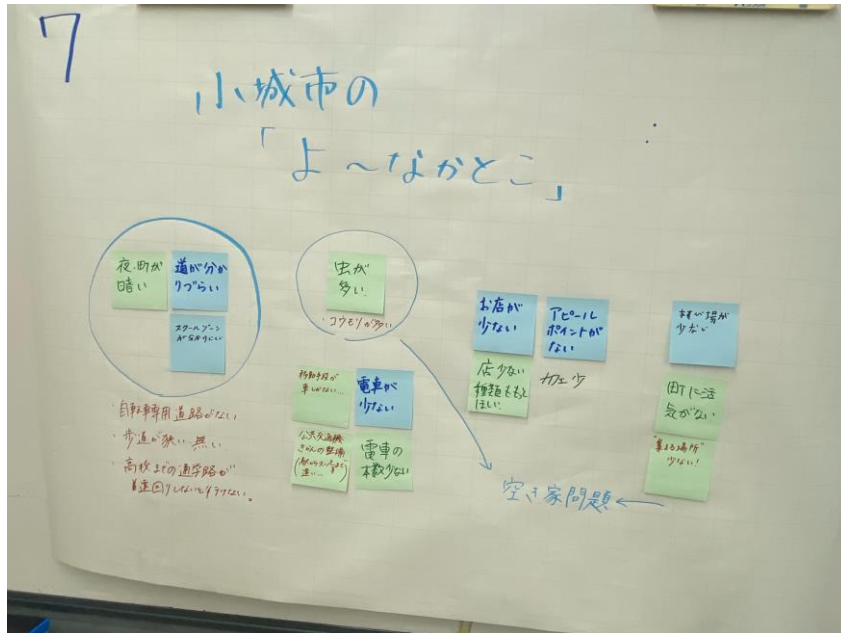 7
小城市の
「よ〜なかとこ」
夜、町が
暗い
道が分か
りづらい
スクールゾーン
が分かりにくい
・自転車専用道路がない
・歩道が狭い 無い
・高校までの通学路が
遠回りしないと行けない。
虫が
多い
・コウモリが多い
移動手段が
車しかない…
電車が
少ない
公共交通機
きかんの整備
遠い…
電車の
本数少ない
お店が
少ない
アピール
ポイントが
ない
店少ない
種類をもっと
ほしい
カフェ少
場が
少ない
町に活
気がない
"集まる場所"
少ない!
空き家問題